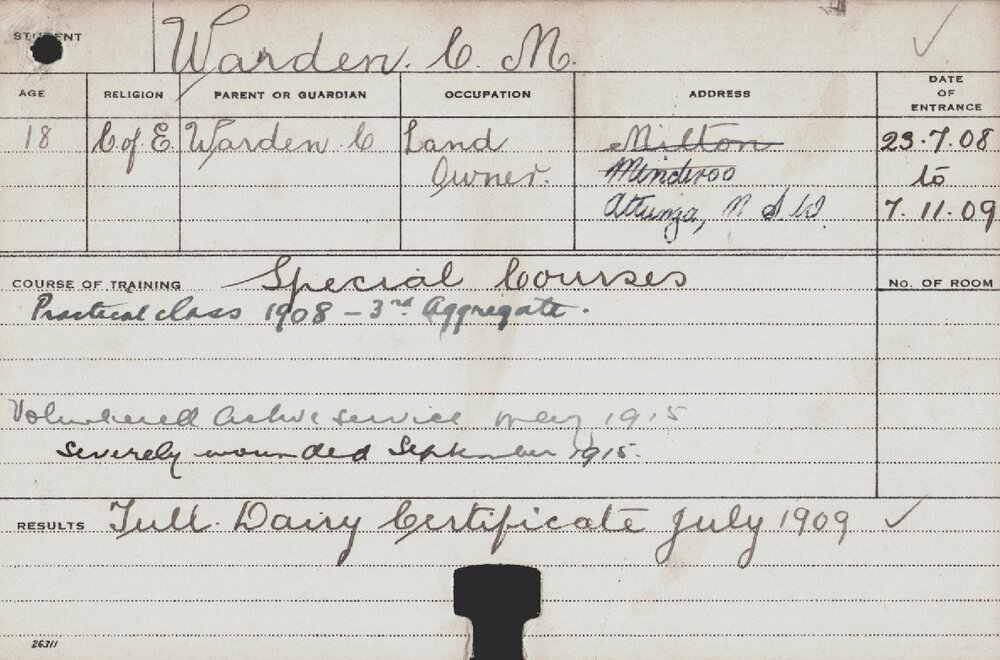 STUDENT Warden. C. M.
AGE RELIGION PARENT OR GUARDIAN OCCUPATION ADDRESS DATE OF ENTRANCE
18 C of E Warden C Land Milton 23.7.08
Owner. Minderoo to
Attunga, N S W. 7.11.09
COURSE OF TRAINING Special Courses No. OF ROOM
Practical class 1908 – 3rd Aggregate.
Volunteered active service May 1915
Severely wounded September 1915.
RESULTS Full Dairy Certificate July 1909
26311